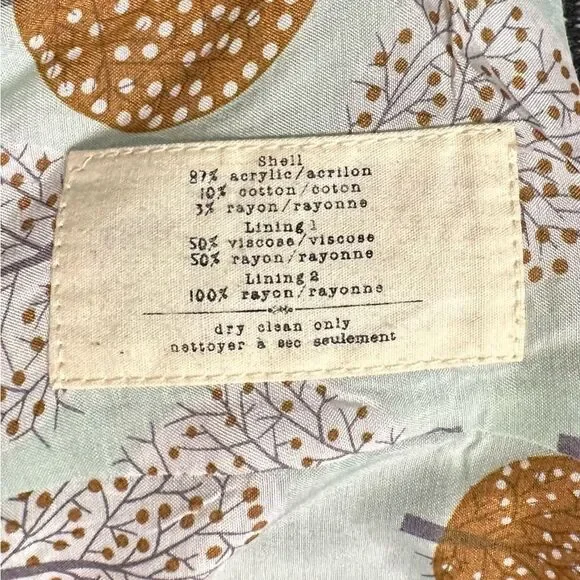 Shell
87% acrylic/acrilon
10% cotton/coton
3% rayon/rayonne
Lining 1
50% viscose/viscose
50% rayon/rayonne
Lining 2
100% rayon/rayonne
dry clean only
nettoyer à sec seulement